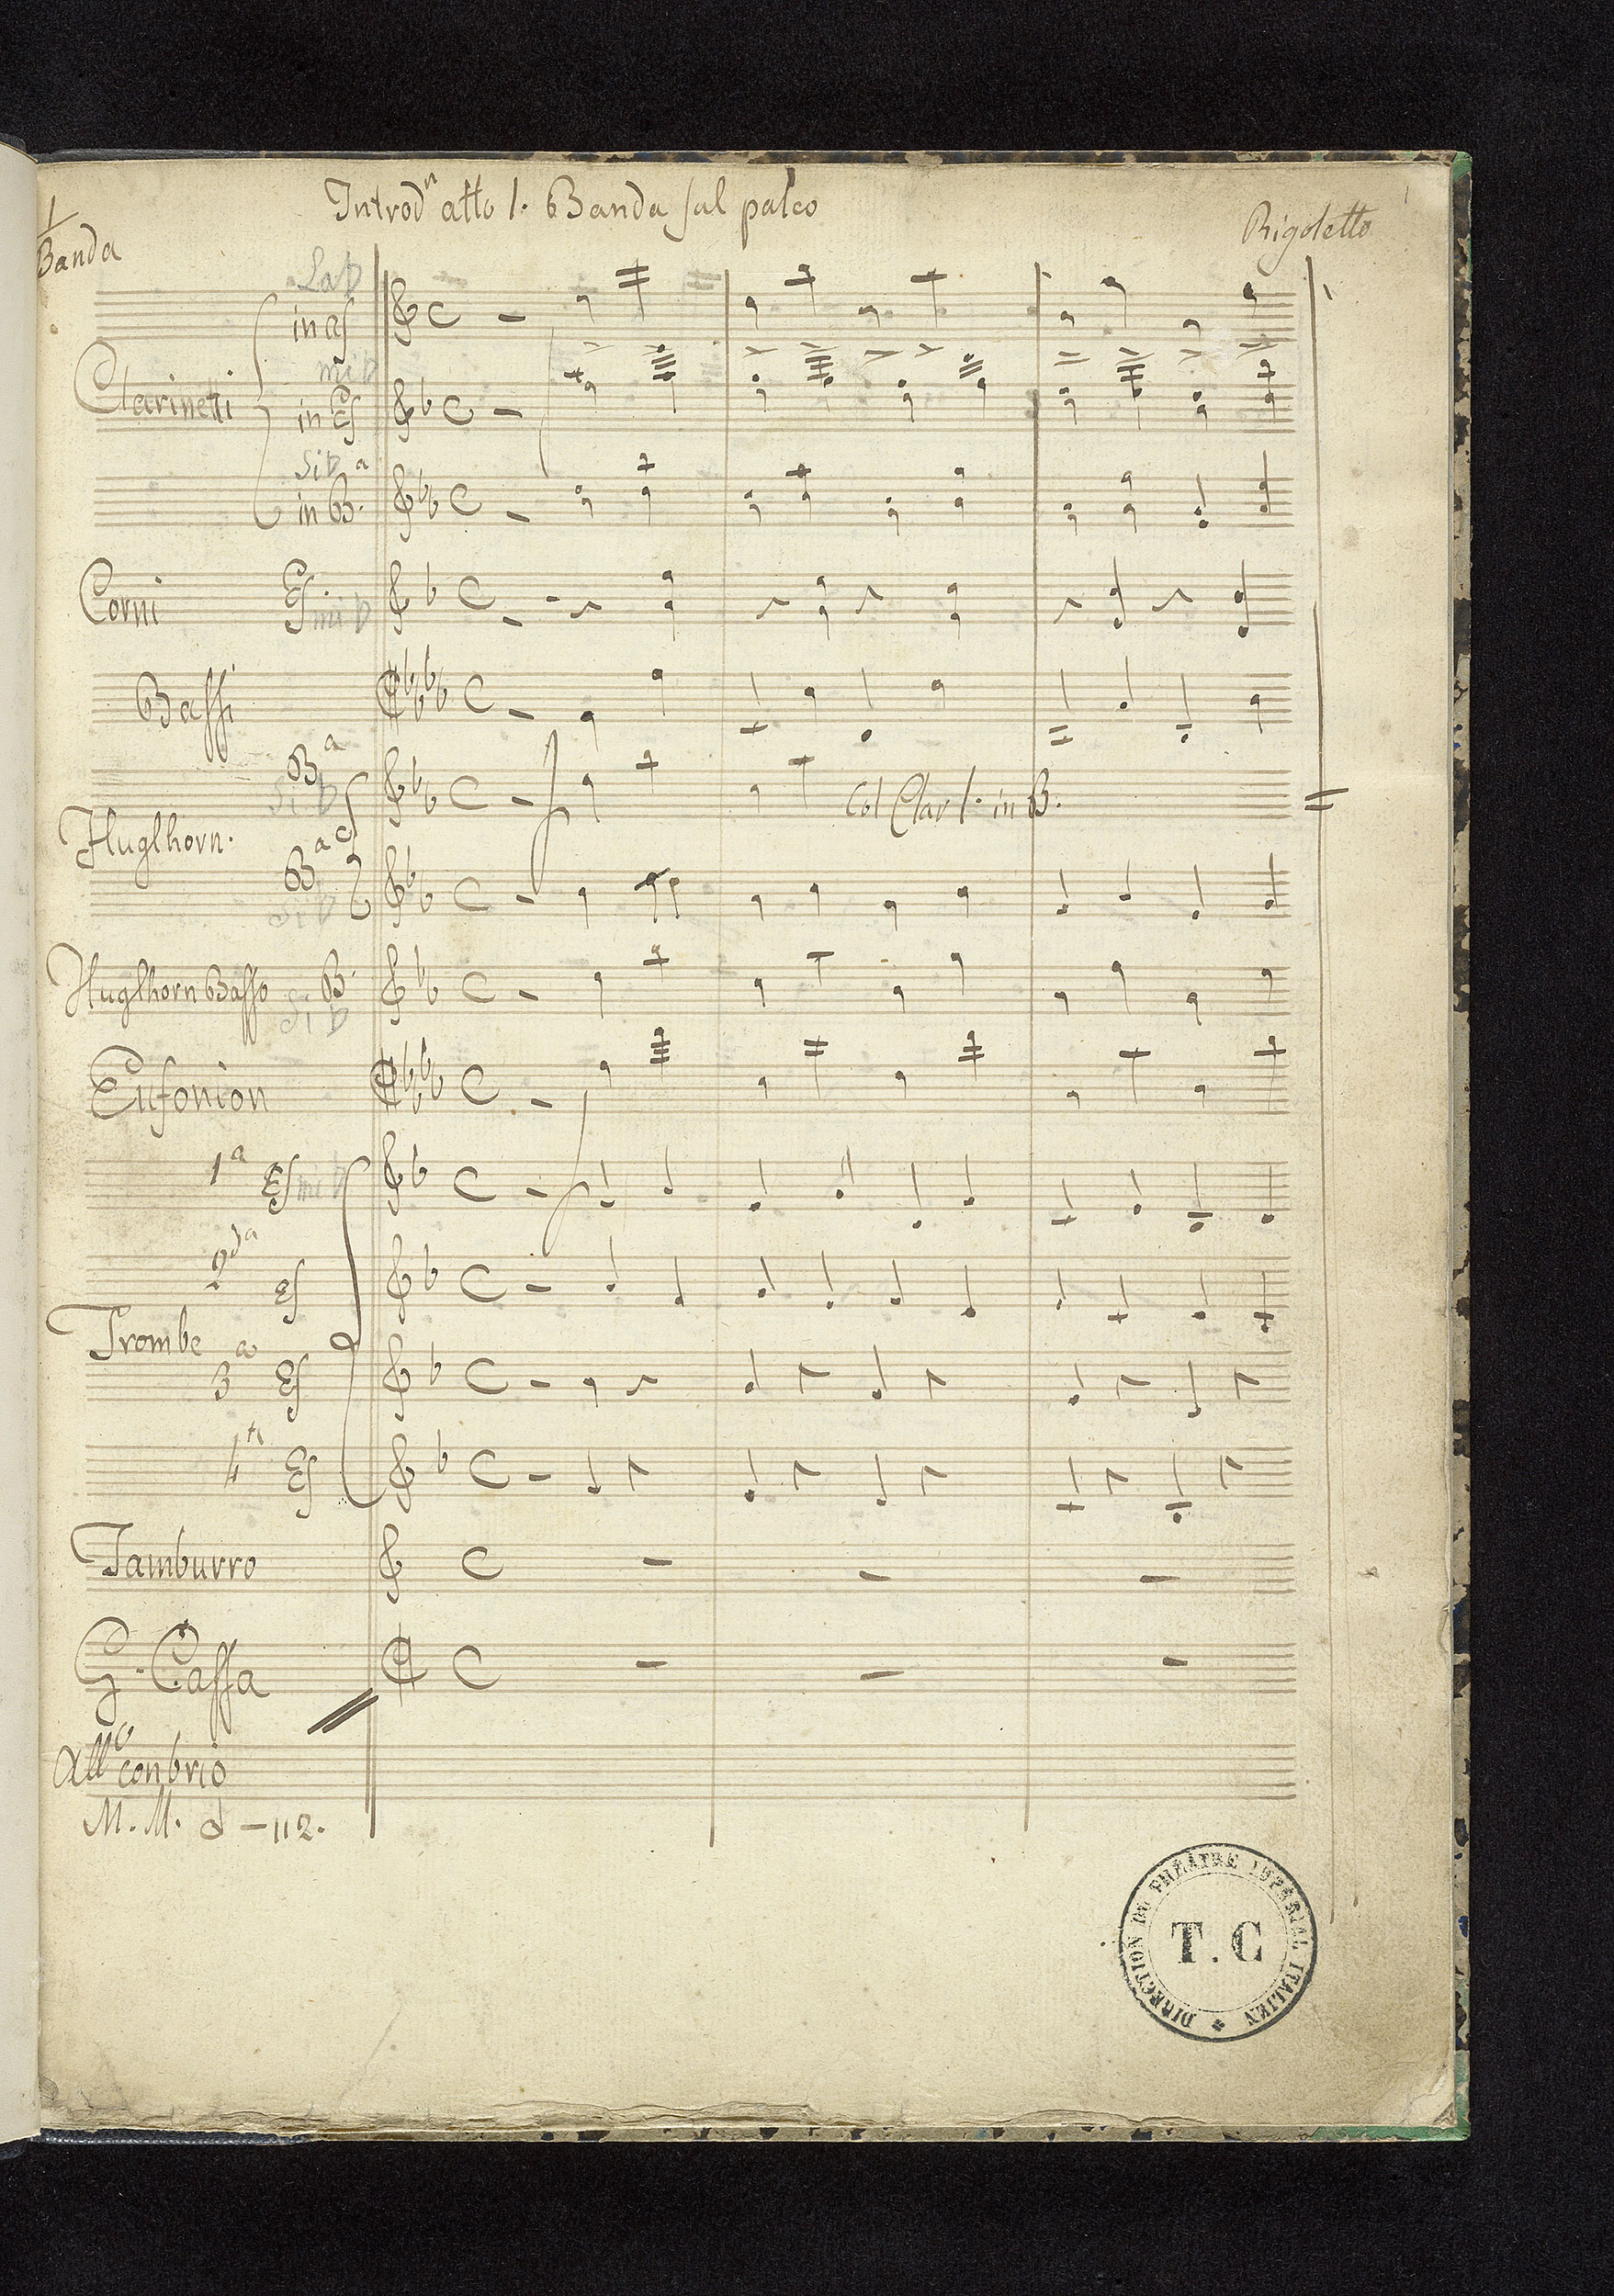 1
Banda
Introdⁿ atto 1. Banda sul palco
Rigoletto
1
Clarinetti
Lab
in as
mi b
in Es
Si b a
in B.
Corni Es. mi b
Bassi
Flüglhorn.
B a
Si b
B a
Si b
Flüglhorn Basso B.
Si b
Eufonion
Trombe
1a Es mi b
2da es
3a Es
4ta Es
Col Clar 1. in B.
Tamburro
G. Cassa
Allo con brio
M. M. 𝅗𝅥 – 112.
DIRECTION DU THÉÂTRE IMPÉRIAL ITALIEN
T. C